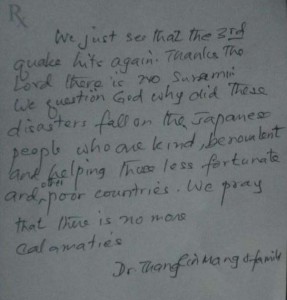 Rx
We just see that the 3rd
quake hits again. Thanks the
Lord there is no Sunamii
We question God why did these
disasters fall on the Japanese
people who are kind, benovalent
and helping those less fortunate
and, other poor countries. We pray
that there is no more
calamaties
Dr. Thang & family